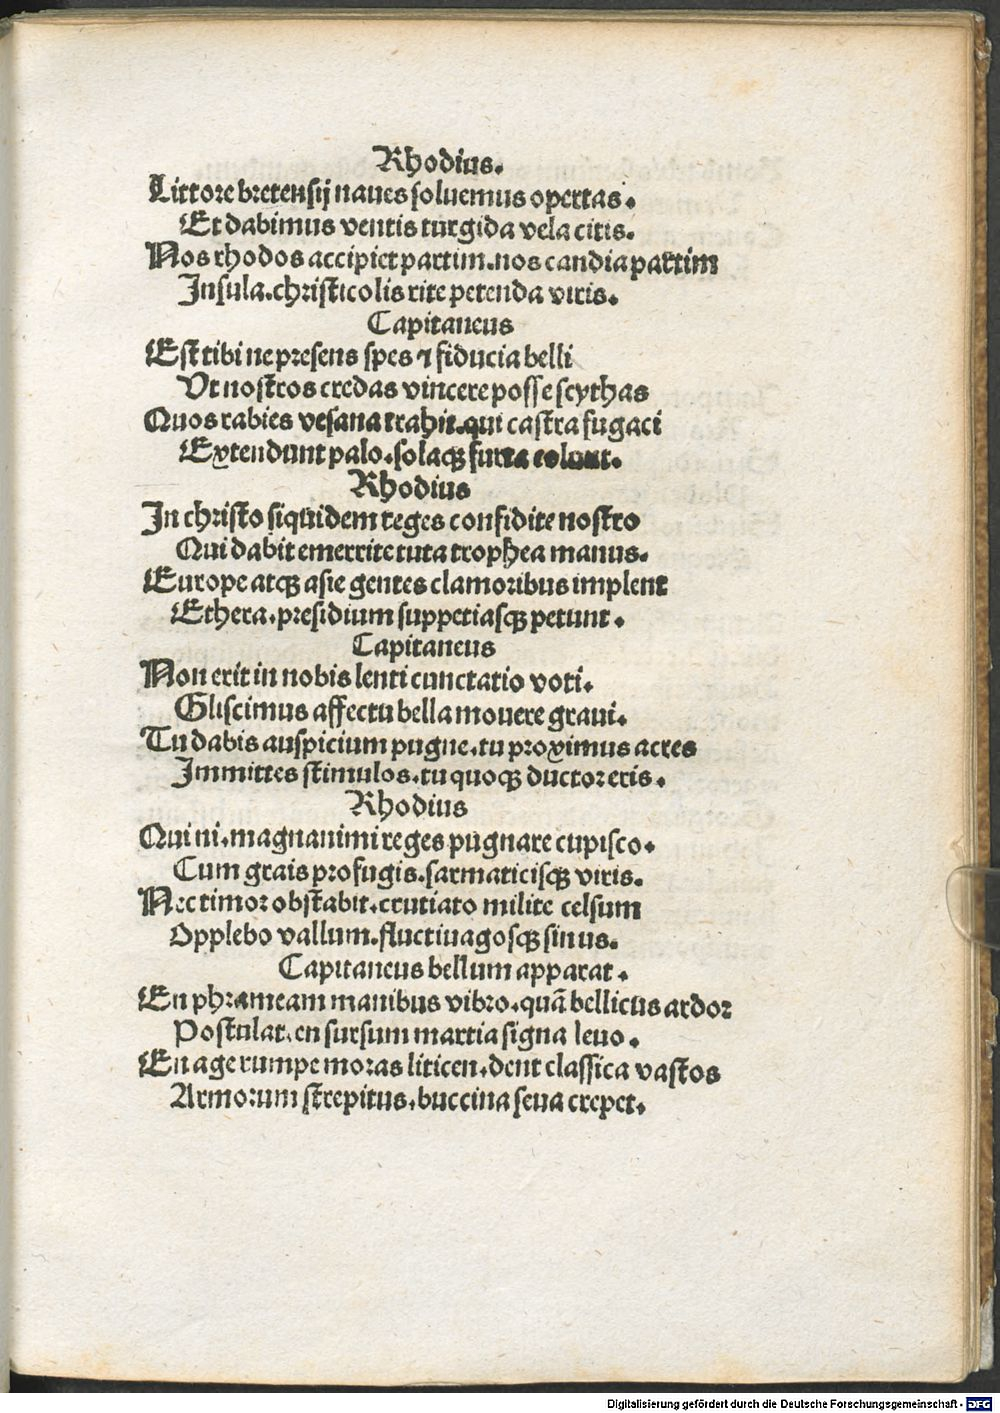 Rhodius.
Littore bretensij naues soluemus opertas.
Et dabimus ventis turgida vela citis.
Nos rhodos accipiet partim.nos candia partim
Insula.christicolis rite petenda viris.
Capitaneus
Est tibi ne presens spes ⁊ fiducia belli
Vt nostros credas vincere posse scythas
Quos rabies vesana trahit.qui castra fugaci
Extendunt palo.solaqꝫ furta colunt.
Rhodius
In christo siquidem reges confidite nostro
Qui dabit emerrite tuta trophea manus.
Europe atqꝫ asie gentes clamoribus implent
Ethera.presidium suppetiasqꝫ petunt.
Capitaneus
Non erit in nobis lenti cunctatio voti.
Gliscimus affectu bella mouere graui.
Tu dabis auspicium pugne.tu proximus acres
Immittes stimulos.tu quoqꝫ ductor eris.
Rhodius
Qui ni.magnanimi reges pugnare cupisco.
Cum grais profugis.sarmaticisqꝫ viris.
Nec timor obstabit.crutiato milite celsum
Opplebo vallum.fluctiuagosqꝫ sinus.
Capitaneus bellum apparat.
En phrameam manibus vibro.quā bellicus ardor
Postulat.en sursum martia signa leuo.
En age rumpe moras liticen.dent classica vastos
Armorum strepitus.buccina seua crepet.
Digitalisierung gefördert durch die Deutsche Forschungsgemeinschaft - DFG